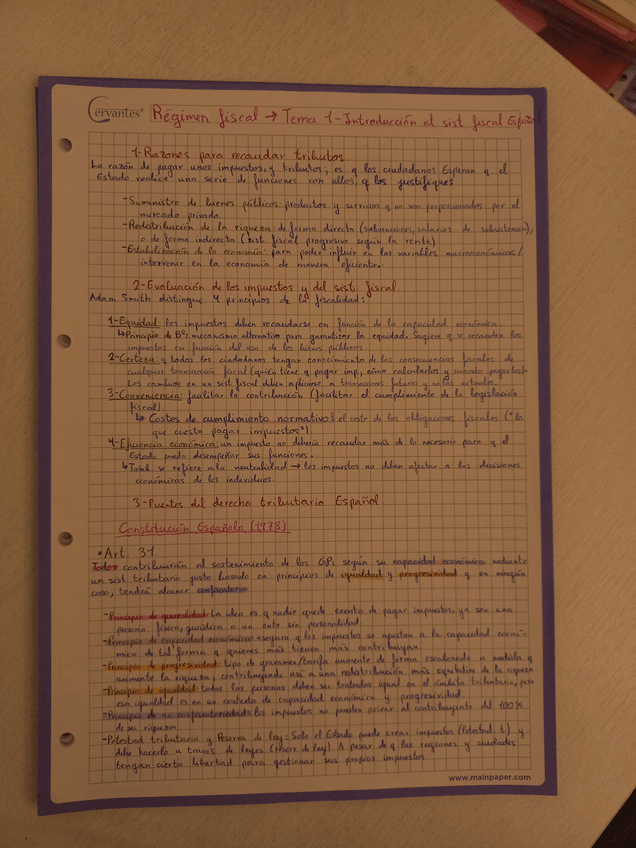 Cervantes®
Régimen fiscal → Tema 1-Introducción al sist fiscal Español
1-Razones para recaudar tributos
La razón de pagar unos impuestos, y tributos, es q los ciudadanos Esperan q el
Estado realice una serie de funciones con ellos, q los justifiques
-Suministro de bienes públicos: productos y servicios q no son proporcionados por el
mercado privado.
-Redistribución de la riqueza de forma directa (subvenciones, salarios de subsistencia),
o de forma indirecta (sist fiscal progresivo según la renta)
-Estabilización de la economía: para poder influir en las variables macroeconómicas/
intervenir en la economía de manera eficiente.
2-Evaluación de los impuestos y del sist. fiscal
Adam Smith distingue 4 principios de la fiscalidad:
1-Equidad: los impuestos deben recaudarse en función de la capacidad económica.
↳Principio de Bº: mecanismo alternativo para garantizar la equidad. Sugiere q se recauden los
impuestos en función del uso de los bienes públicos
2-Certeza: q todos los ciudadanos tengan conocimiento de las consecuencias fiscales de
cualquier transacción fiscal (quién tiene q pagar imp, cómo calcularlos y cuándo pagarlos).
Los cambios en un sist fiscal deben aplicarse a transacciones futuras y no las actuales.
3-Conveniencia: facilitar la contribución (facilitar el cumplimiento de la legislación
fiscal)
↳ Costes de cumplimiento normativo: el coste de las obligaciones fiscales ("lo
que cuesta pagar impuestos")
4-Eficiencia económica: un impuesto no debería recaudar más de lo necesario para q el
Estado pueda desempeñar sus funciones.
↳Tamb se refiere a la neutralidad → los impuestos no deben afectar a las decisiones
económicas de los individuos.
3-Fuentes del derecho tributario Español
Constitución Española (1978)
•Art. 31
Todos contribuirán al sostenimiento de los GPs según su capacidad económica mediante
un sist tributario justo basado en principios de igualdad y progresividad q en ningún
caso, tendrá alcance confiscatorio
-Principio de generalidad: La idea es q nadie quede exento de pagar impuestos, ya sea una
persona física, jurídica o un ente sin personalidad.
-Principio de capacidad económica: asegura q los impuestos se ajusten a la capacidad econó-
mica de tal forma q quienes más tienen más contribuyan.
-Principio de progresividad: tipo de gravamen/tarifa aumente de forma escalonada a medida q
aumente la riqueza, contribuyendo así a una redistribución más equitativa de la riqueza.
-Principio de igualdad: todas las personas deben ser tratadas igual en el ámbito tributario, pero
esa igualdad es en un contexto de capacidad económica y progresividad.
-Principio de no confiscatoriedad: los impuestos no pueden privar al contribuyente del 100%
de su riqueza.
-Potestad tributaria y Reserva de ley: Solo el Estado puede crear impuestos (Potestad t.) y
debe hacerlo a través de leyes (reserv de ley). A pesar de q las regiones y ciudades
tengan cierta libertad para gestionar sus propios impuestos.
www.mainpaper.com